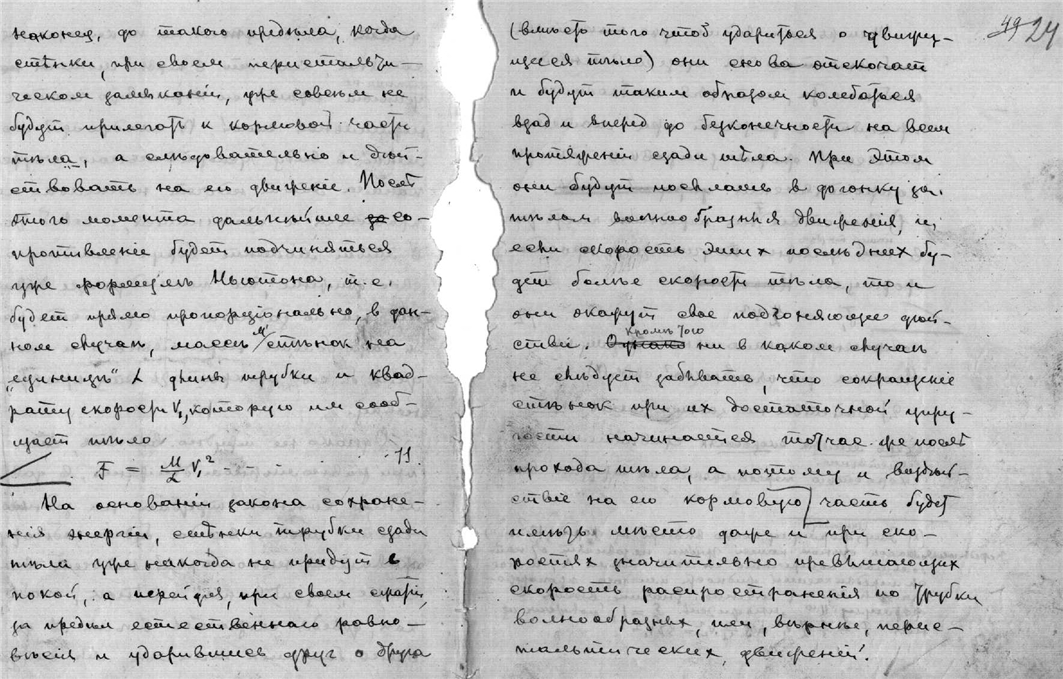 наконец, до такого предѣла, когда
стѣнки, при своем перистальти-
ческом замыканіи, уже совсѣм не
будут прилегать к кормовой части
тѣла, а слѣдовательно и дѣй-
ствовать на его движеніе. Послѣ
этого момента дальнѣйшее за со-
противленіе будет подчиняться
уже формулѣ Ньютона, т. е.
будет прямо пропорціонально, в дан-
ном случаѣ, массѣ М стѣнок на
"единицѣ" L длины трубки и квад-
рату скорости V₁, которую им сооб-
щает тѣло
F = M/L V₁² --- - 11
На основаніи закона сохране-
нія энергіи, стѣнки трубки сзади
тѣла уже никогда не придут в
покой, а перейдя, при своем
за предѣл естественнаго равно-
вѣсія и ударившись друг о друга
49 24
(вмѣсто того чтоб удариться о движу-
щееся тѣло) они снова отскочат
и будут таким образом колебаться
взад и вперед до безконечности на всем
протяженіи сзади тѣла. При этом
они будут посылать в догонку за
тѣлом волнообразныя движенія, и,
если скорость этих послѣдних бу-
дет болѣе скорости тѣла, то и
они окажут свое подгоняющее дѣй-
ствіе. Однако Кромѣ того ни в каком случаѣ
не слѣдует забывать, что сокращеніе
стѣнок при их достаточной упру-
гости начинается тотчас же послѣ
прохода тѣла, а потому и воздѣй-
ствіе на его кормовую часть будет
имѣть мѣсто даже и при ско-
ростях значительно превышающих
скорость распространенія по трубкѣ
волнообразных, или, вѣрнѣе, перис-
тальтических, движеній.